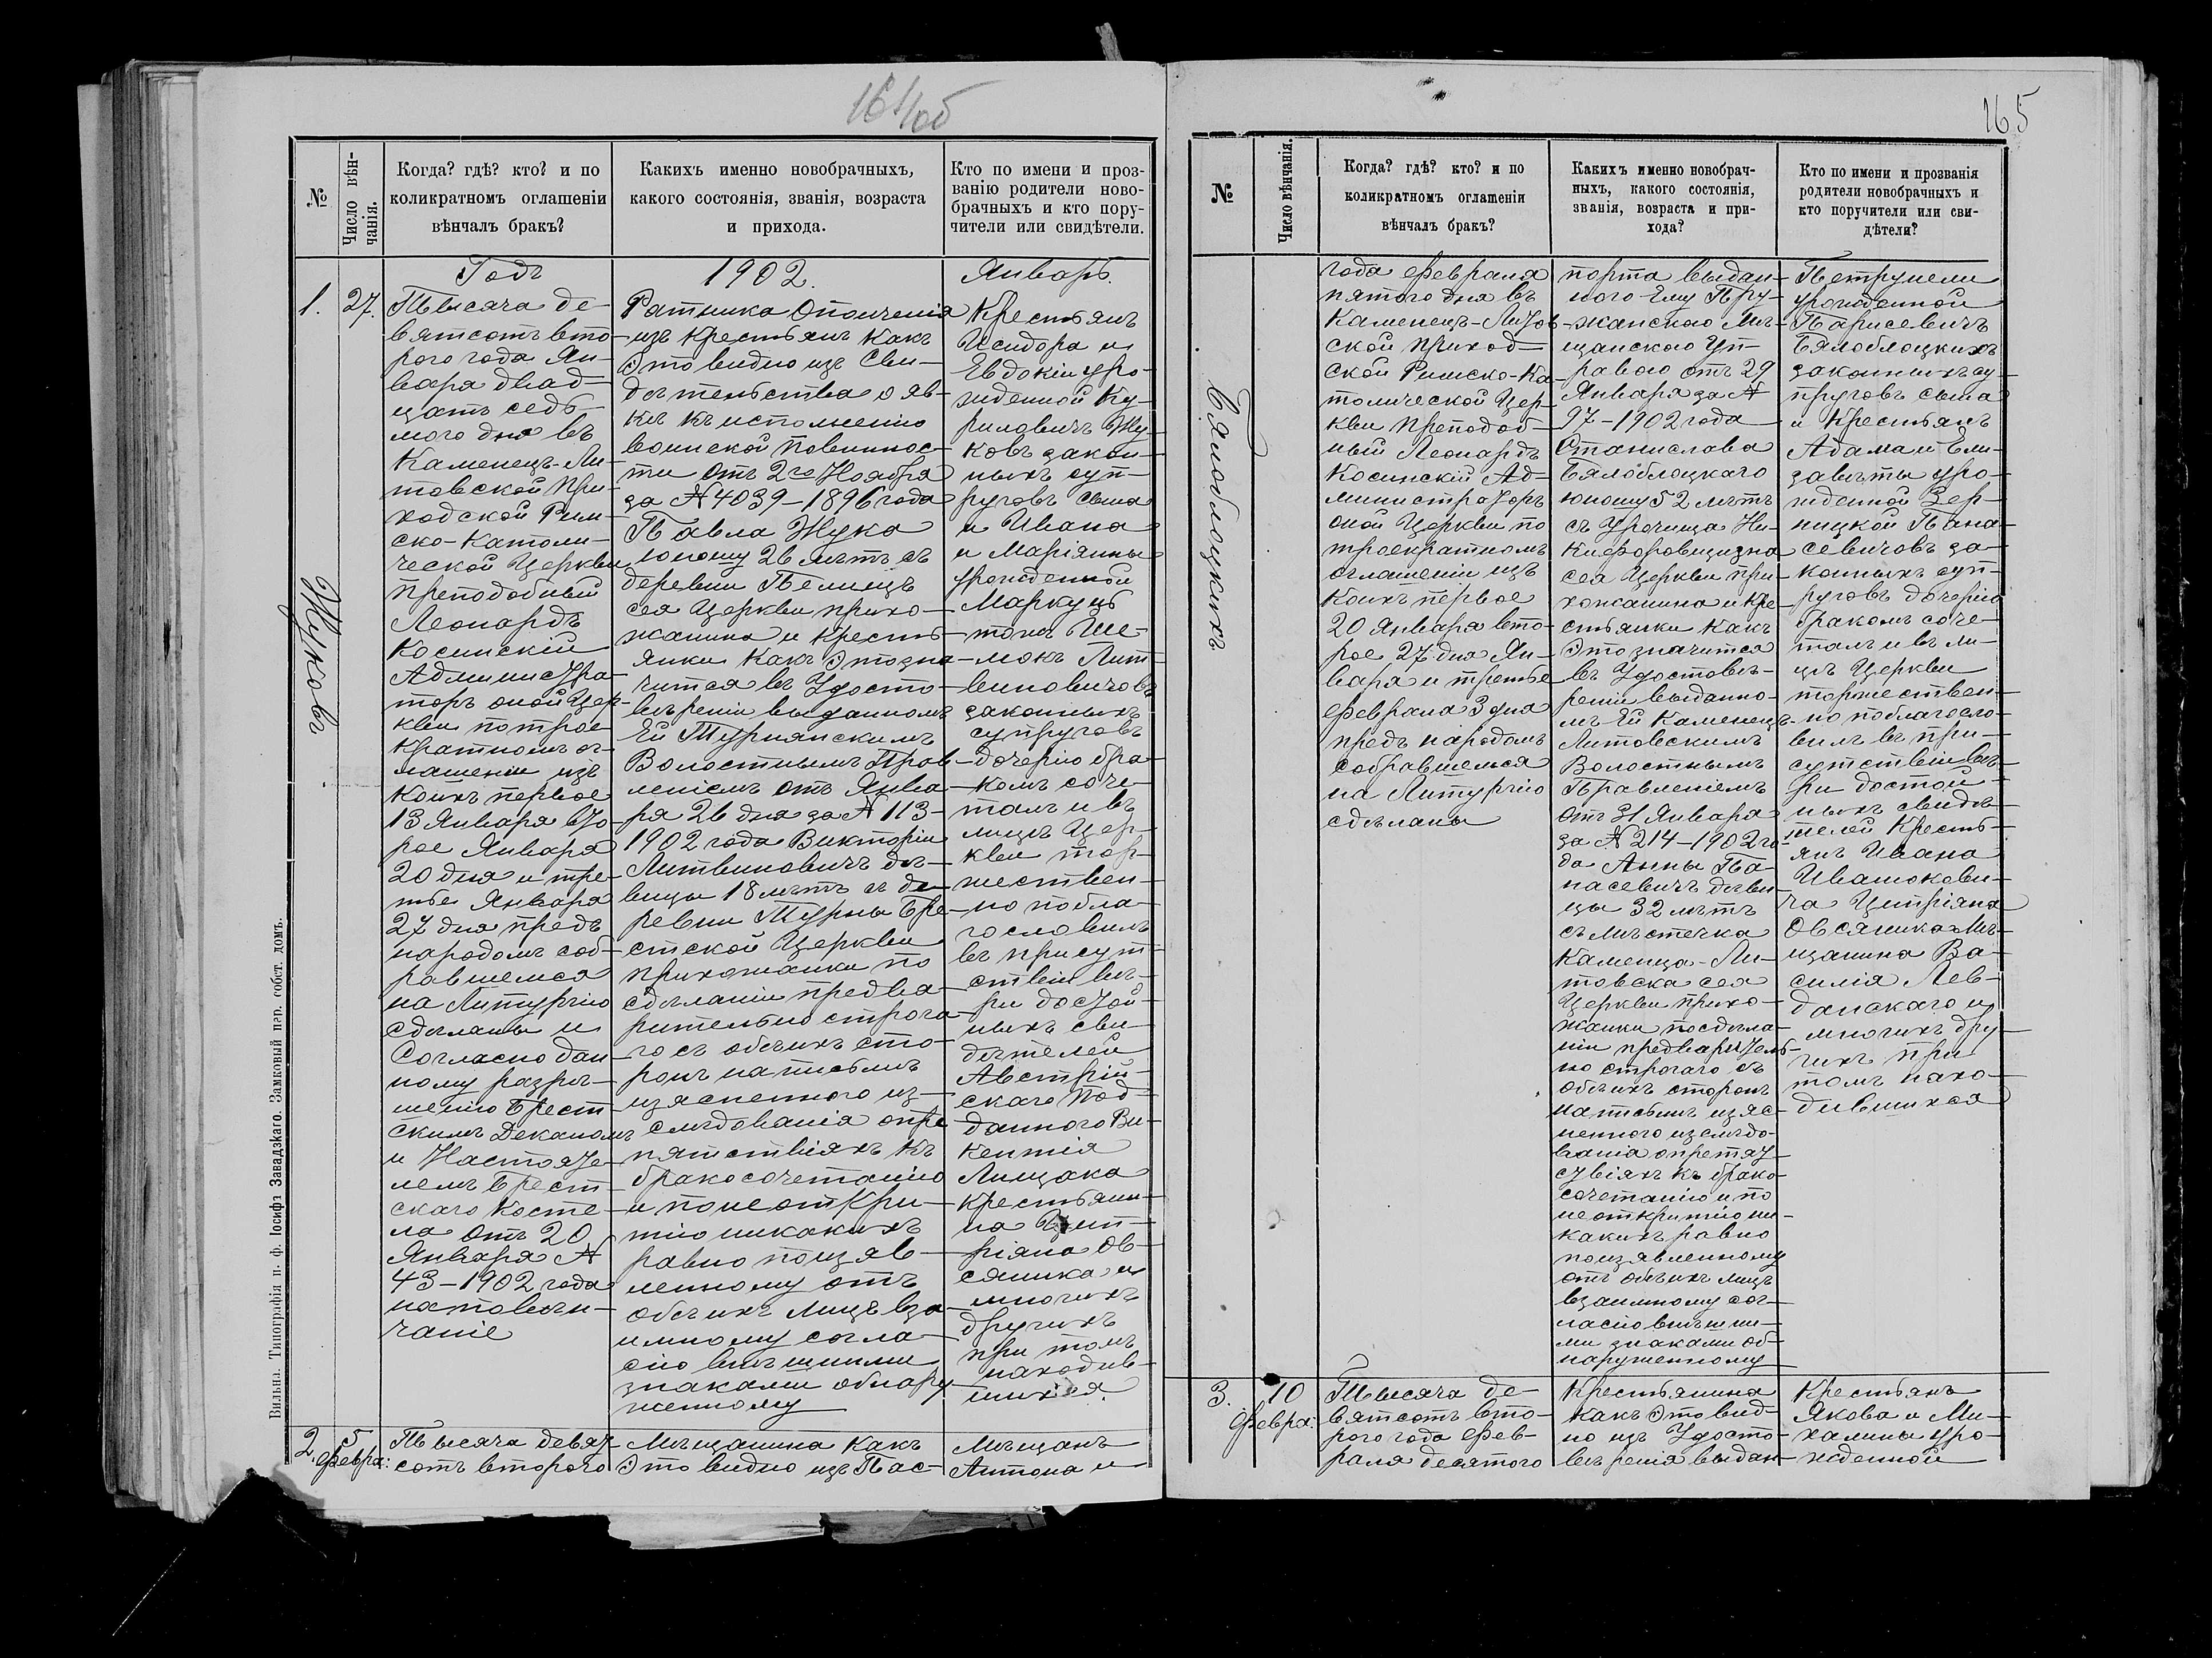 164об
№
Число вѣн-
чанія.
Когда? гдѣ? кто? и по
коликратномъ оглашеніи
вѣнчалъ бракъ?
Какихъ именно новобрачныхъ,
какого состоянія, званія, возраста
и прихода.
Кто по имени и проз-
ванію родители ново-
брачныхъ и кто пору-
чители или свидѣтели.
Годъ
1902.
Январь.
1.
27.
Жуковъ
Тысяча де-
вятсотъ вто-
рого года Ян-
варя двад-
цать седь-
мого дня въ
Каменецъ-Ли-
товской При-
ходской Рим-
ско-Католи-
ческой Церкви
преподобный
Леонардъ
Косинскій
Администра-
торъ оной Цер-
кви по трое
кратномъ ог-
лашеніи изъ
коихъ первое
13 Января Вто-
рое Января
20 дня и тре-
тье Января
27 дня предъ
народомъ соб-
равшемся
на Литургію
сдѣланы и
Согласно дан-
ному разрѣ-
шенію Брест-
скимъ Деканомъ
и Настояте-
лемъ Брест-
скаго Косте-
ла отъ 20
Января №
43-1902 года
на повѣн-
чаніе
Ратника Ополченія
изъ крестьянъ Какъ
Это видно изъ Сви-
дѣтельства о яв-
кѣ къ исполненію
воинской повиннос-
ти отъ 2го Ноября
за № 4039-1896 года
Павла Жука
юношу 26 лѣтъ съ
деревни Пелищъ
сея Церкви прихо-
жанина и Кресть-
янки Какъ Это зна-
чится въ Удосто-
вѣреніи выданномъ
Ей Турнянскимъ
Волостнымъ Прав-
леніемъ отъ Янва-
ря 26 дня за № 113-
1902 года Викторіи
Литвиновичъ дѣ-
вицы 18 лѣтъ съ де-
ревни Турны Бре-
стской Церкви
прихожанки по
сдѣланіи предва-
рительно строга-
го съ обѣихъ сто-
ронъ на письмѣ
изясненного из-
слѣдованія о пре-
пятствіяхъ къ
бракосочетанію
и по неоткри-
тію никакихъ
равно по изяв-
ленному отъ
обѣихъ лицъ вза-
имному согла-
сію внѣшними
знаками обнару-
женному
Крестьянъ
Исидора и
Евдокіи уро-
жденной Ку-
риловичъ Жу-
ковъ закон-
ныхъ суп-
руговъ сына
и Ивана
и Маріянны
урожденной
Маркузъ
тонъ Ше-
люкъ Лит-
виновичовъ
законныхъ
супруговъ
дочерію бра-
комъ соче-
талъ и въ
лицѣ Цер-
кви тор-
жествен-
но побла-
гословилъ
въ присут-
ствіи вѣ-
ри достой-
ныхъ сви-
дѣтелей
Австрій-
скаго Под-
данного Ви-
кентія
Лищака
крестьяни-
на Цип-
ріяна Ов-
сяника и
многихъ
другихъ
при томъ
находив-
шихся.
2.
5
Февра:
Тысяча девят-
сотъ второго
Мѣщанина Какъ
Это видно изъ Пас-
Мѣщанъ
Антона и
Вильна. Типографія п. ф. Іосифъ Завадзкаго. Замковый пер. собст. домъ.
165
№
Число вѣнчанія.
Когда? гдѣ? кто? и по
коликратномъ оглашеніи
вѣнчалъ бракъ?
Какихъ именно новобрач-
ныхъ, какого состоянія,
званія, возраста и при-
хода?
Кто по имени и прозванія
родители новобрачныхъ и
кто поручители или сви-
дѣтели?
Бялоблоцкихъ
года Февраля
пятого дня въ
Каменецъ-Литов-
ской приход-
ской Римско-Ка-
толической Цер-
кви преподоб-
ный Леонардъ
Косинскій Ад-
министраторъ
оной Церкви по
троекратномъ
оглашеніи изъ
Коихъ первое
20 Января вто-
рое 27 дня Ян-
варя и третье
Февраля 3 дня
предъ народомъ
собравшемся
на Литургію
сдѣланы
порта выдан-
ного Ему Пру-
жанскою Мѣ-
щанскою Уп-
равою отъ 29
Января за №
97-1902 года
Станислава
Бялоблоцкаго
юношу 52 лѣтъ
съ Урочища Ни-
кифоровщизна
сея Церкви при-
хожанина и Кре-
стьянки Какъ
Это значится
въ Удостовѣ-
реніи выданно-
мъ Ей Каменецъ-
Литовскимъ
Волостнымъ
Правленіемъ
отъ 31 Января
за № 214-1902 го-
да Анны Па-
насевичъ дѣви-
цы 32 лѣтъ
съ мѣстечка
Каменца-Ли-
товска сея
Церкви прихо-
жанки по сдѣла-
ніи предваритель-
но строгаго съ
обѣихъ сторонъ
на письмѣ изяс-
ненного изслѣдо-
ванія о препят-
ствіяхъ къ брако-
сочетанію и по
неоткритію ни-
какихъ равно
по изявленному
отъ обѣихъ лицъ
взаимному сог-
ласію внѣшни-
ми знаками об-
наруженному
Петрунели
урожденной
Парисевичъ
Бялоблоцкихъ
законныхъ су-
пруговъ сына
и Крестьянъ
Адама и Ели-
заветы уро-
жденной Зер-
ницкой Пана-
севичовъ за-
конныхъ суп-
руговъ дочерію
бракомъ соче-
талъ и въ ли-
цѣ Церкви
торжествен-
но поблагосло-
вилъ въ при-
сутствіи вѣ-
ри достой-
ныхъ свидѣ-
телей Кресть-
янъ Ивана
Ивашокеви-
ча Ципріяна
Овсяника Мѣ-
щанина Ва-
силія Лев-
данскаго и
многихъ дру-
гихъ при
томъ нахо-
дившихся
3.
10
Февра:
Тысяча де-
вятсотъ вто-
рого года Фев-
раля десятого
Крестьянина
Какъ Это вид-
но изъ Удосто-
вѣренія выдан-
Крестьянъ
Якова и Ми-
халины уро-
жденной